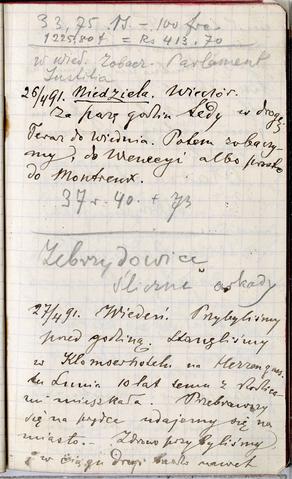 33,75. 15 — 100 frc
1225,80f = Rs 413.70
w wied. zobacz. Parlament
Justitia
26/491. Niedziela. Wieczór.
Za parę godzin będę w drogę.
Teraz do Wiednia. Potem zobaczy-
my, do Wenecyi albo prosto
do Montreux.
37 r. 40. + 73
Zebrzydowice
śliczne arkady
27/491. Wiedeń. Przybyliśmy
przed godziną. Stanęliśmy
w Klomserhotelu na Herrengas.
tu Lunia 10 lat temu z
mi mieszkała. Przebrawszy
się na prędce udajemy się na
miasto. Zdrowo przybyliśmy,
w ciągu drogi nawet